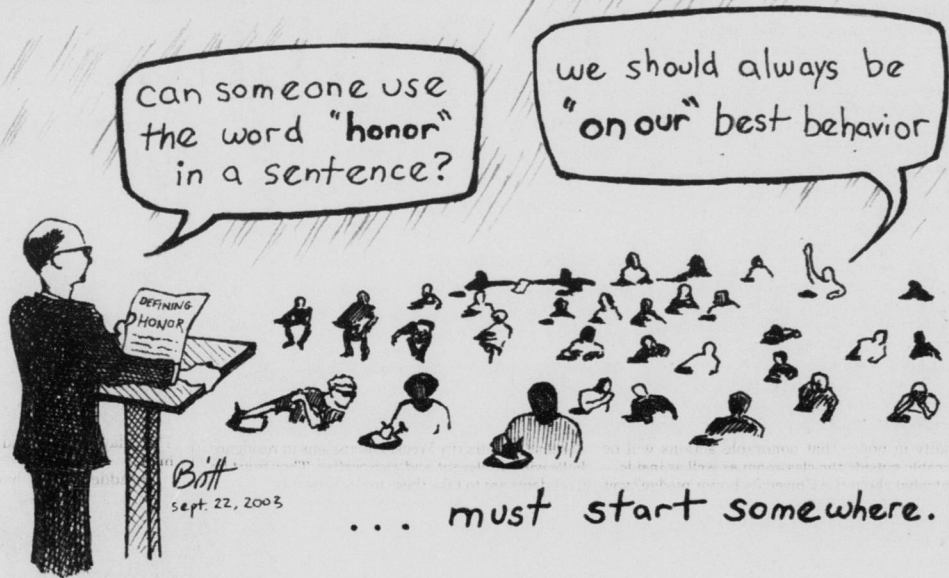 can someone use
the word "honor"
in a sentence?
we should always be
"on our" best behavior
DEFINING
HONOR
Britt
sept. 22, 2003
... must start somewhere.